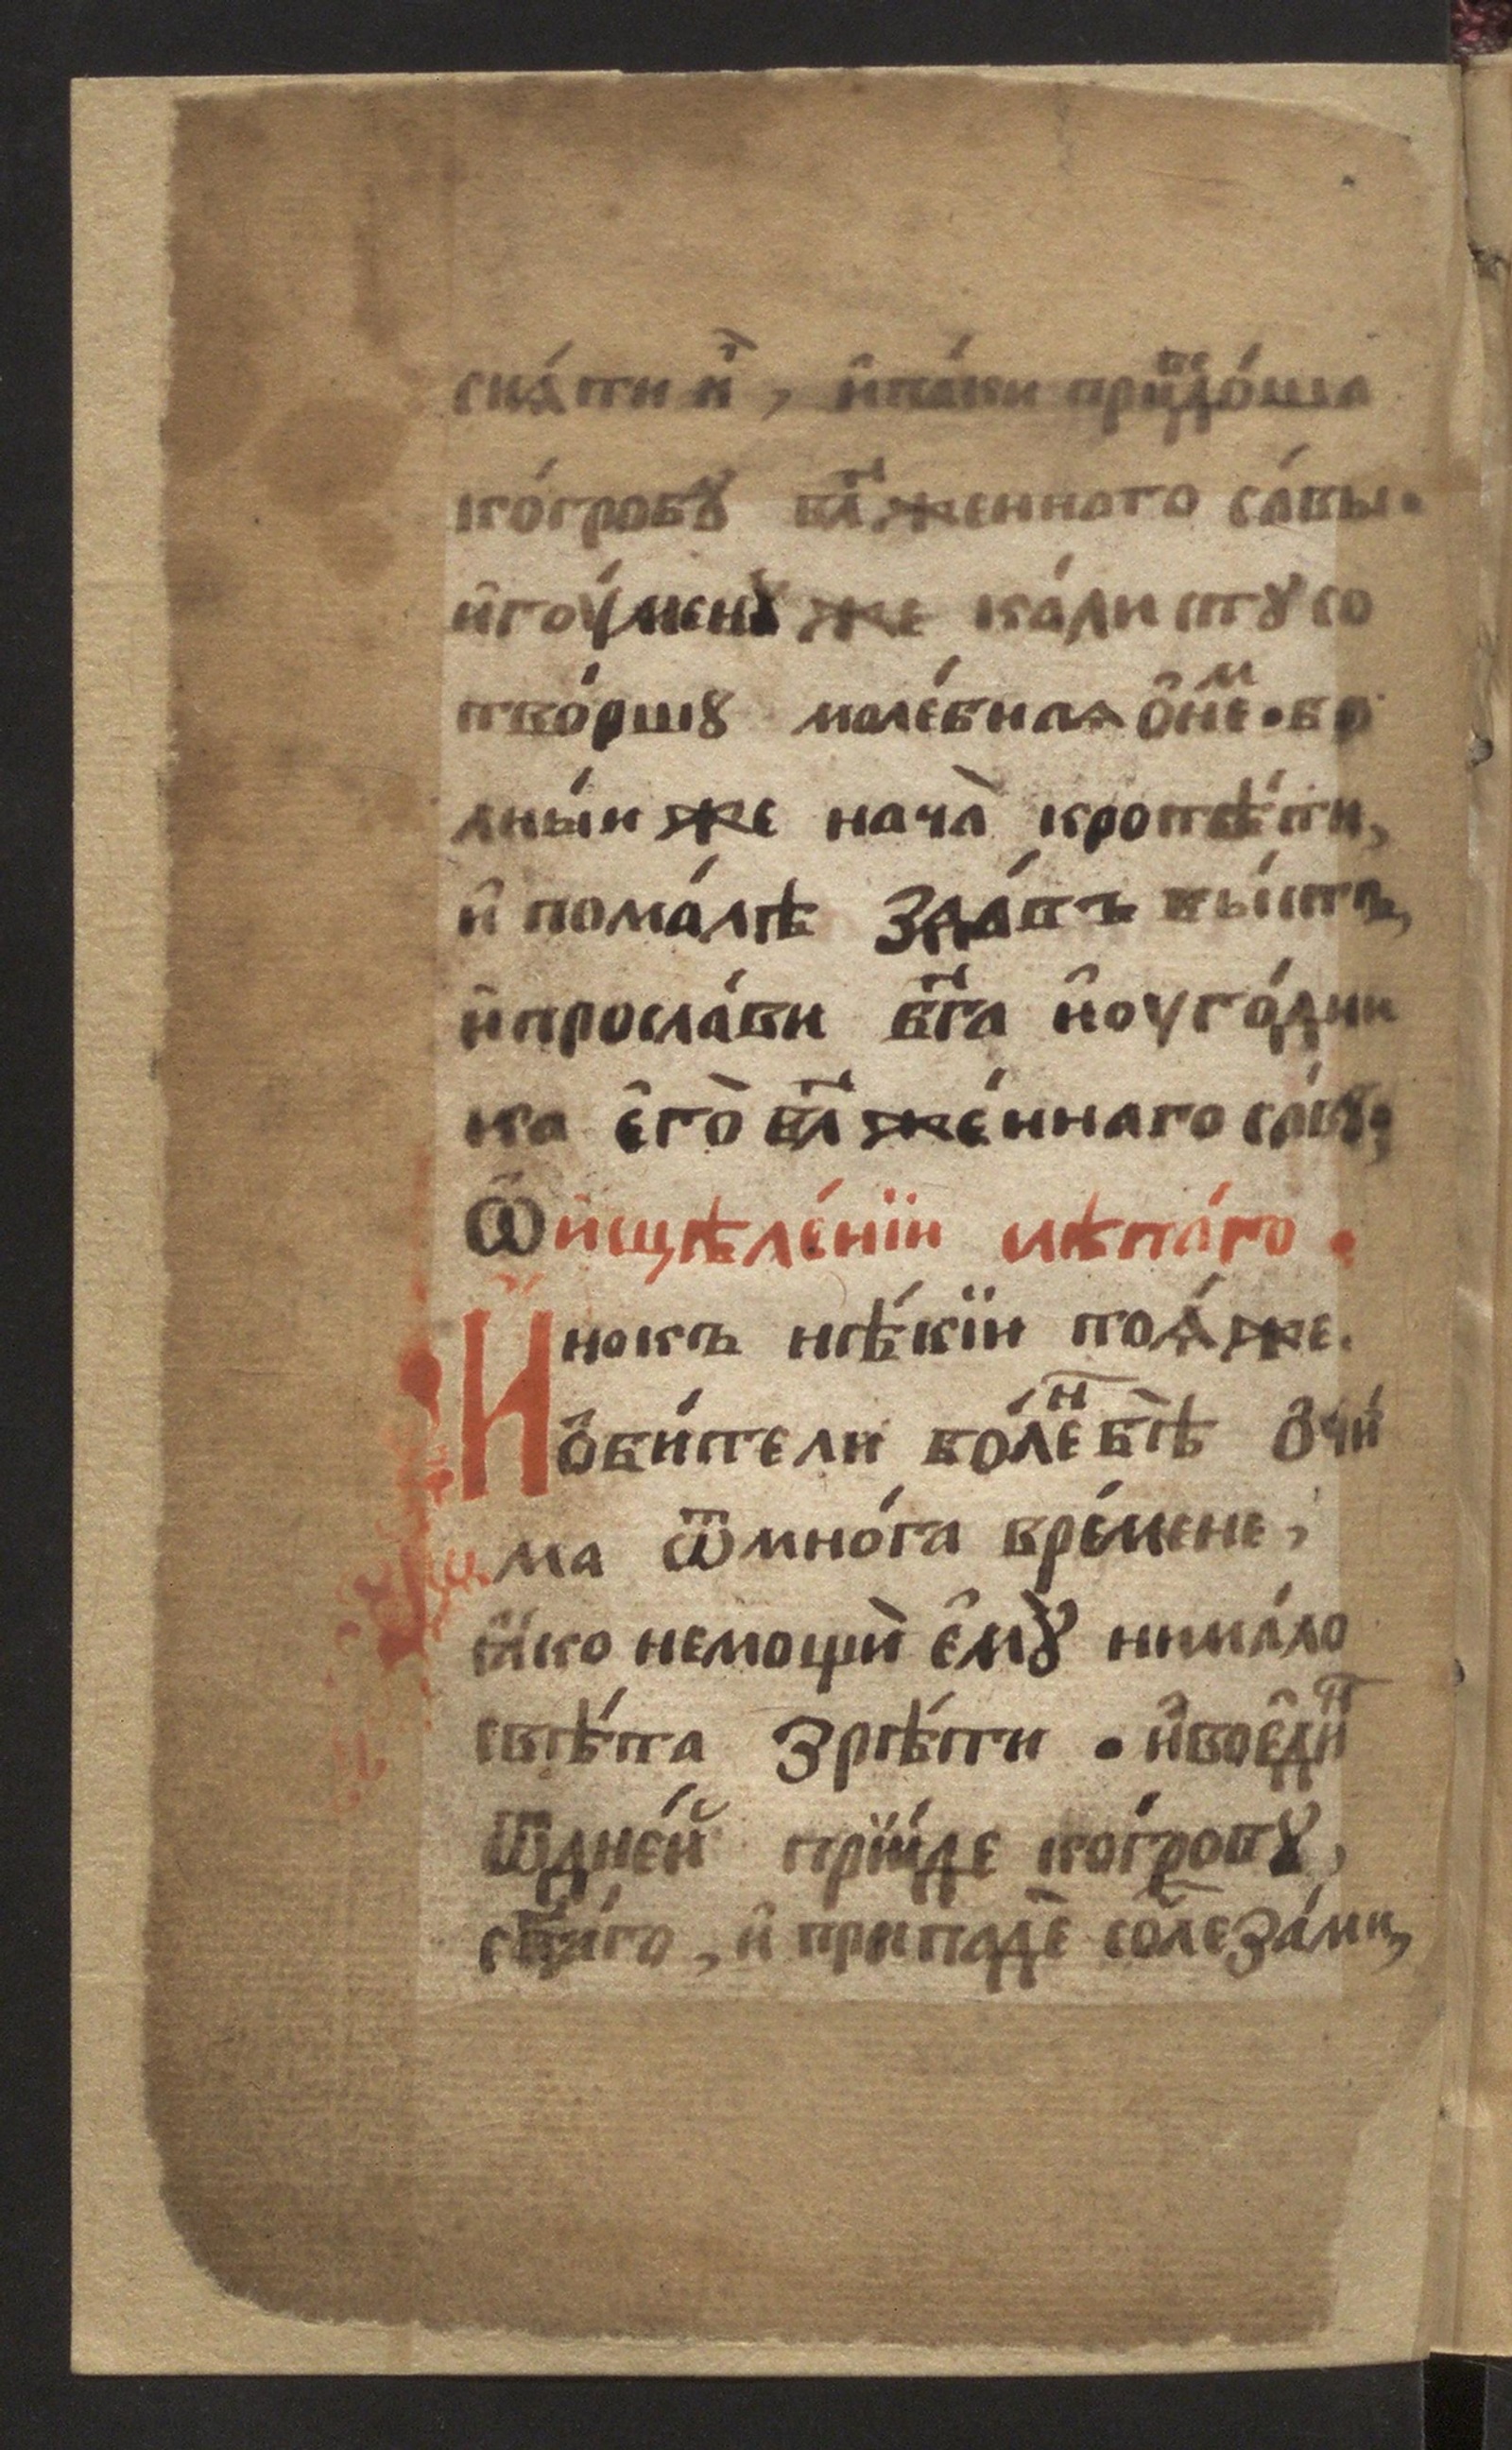 скати и҆̀, и҆ та́ки прїидо́ша
ко́гробꙋ бл҃женнаго са́вы.
и҆гоу́менꙋ же ка́листꙋ со
тво́ршꙋ моле́бнаѧ ѻ҆неⷨ. бо
лны́и же нача̀ кротѣ́ти,
и҆ пома́лѣ здра́въ бы́сть,
и҆просла́ви бг҃а и҆оуго́дни
ка є҆го̀ бл҃же́ннаго са́вꙋ;
Ѽ и҆сцѣле́нїи слѣпа́го.
И҆нокъ нѣ́кїи тоѧ́же.
ѻ҆би́тели бо́леⷩ҇ бѣ̀ ѻ҆чи́
ма ѿмно́га вре́мене,
ꙗ҆́ко немощѝ є҆мꙋ̀ нима́ло
свѣ́та зрѣ́ти . и҆вое҆диⷩ
ѿдне́й прїи́де ко́гробꙋ,
ст҃а́го, и҆ припадѐ со̀слезами,